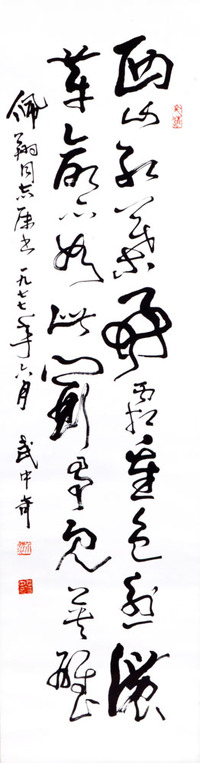 西山红叶好霜重色愈浓
革命亦如此斗争见英雄
佩翔同志属书一九七七年六月武中奇